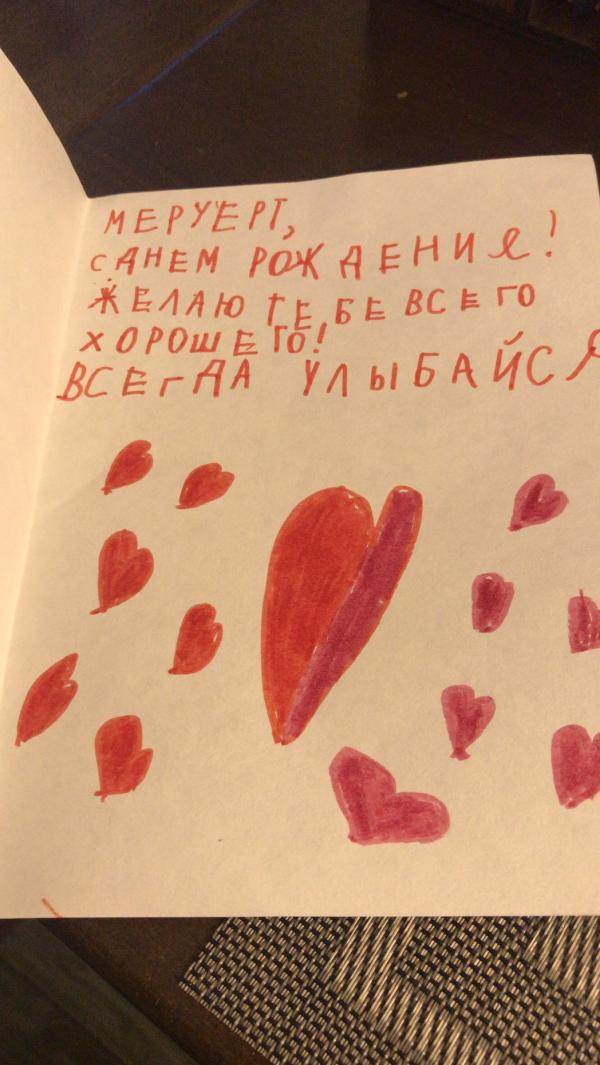 МЕРУЕРТ,
С ДНЕМ РОЖДЕНИЯ!
ЖЕЛАЮ ТЕБЕ ВСЕГО
ХОРОШЕГО!
ВСЕГДА УЛЫБАЙСЯ